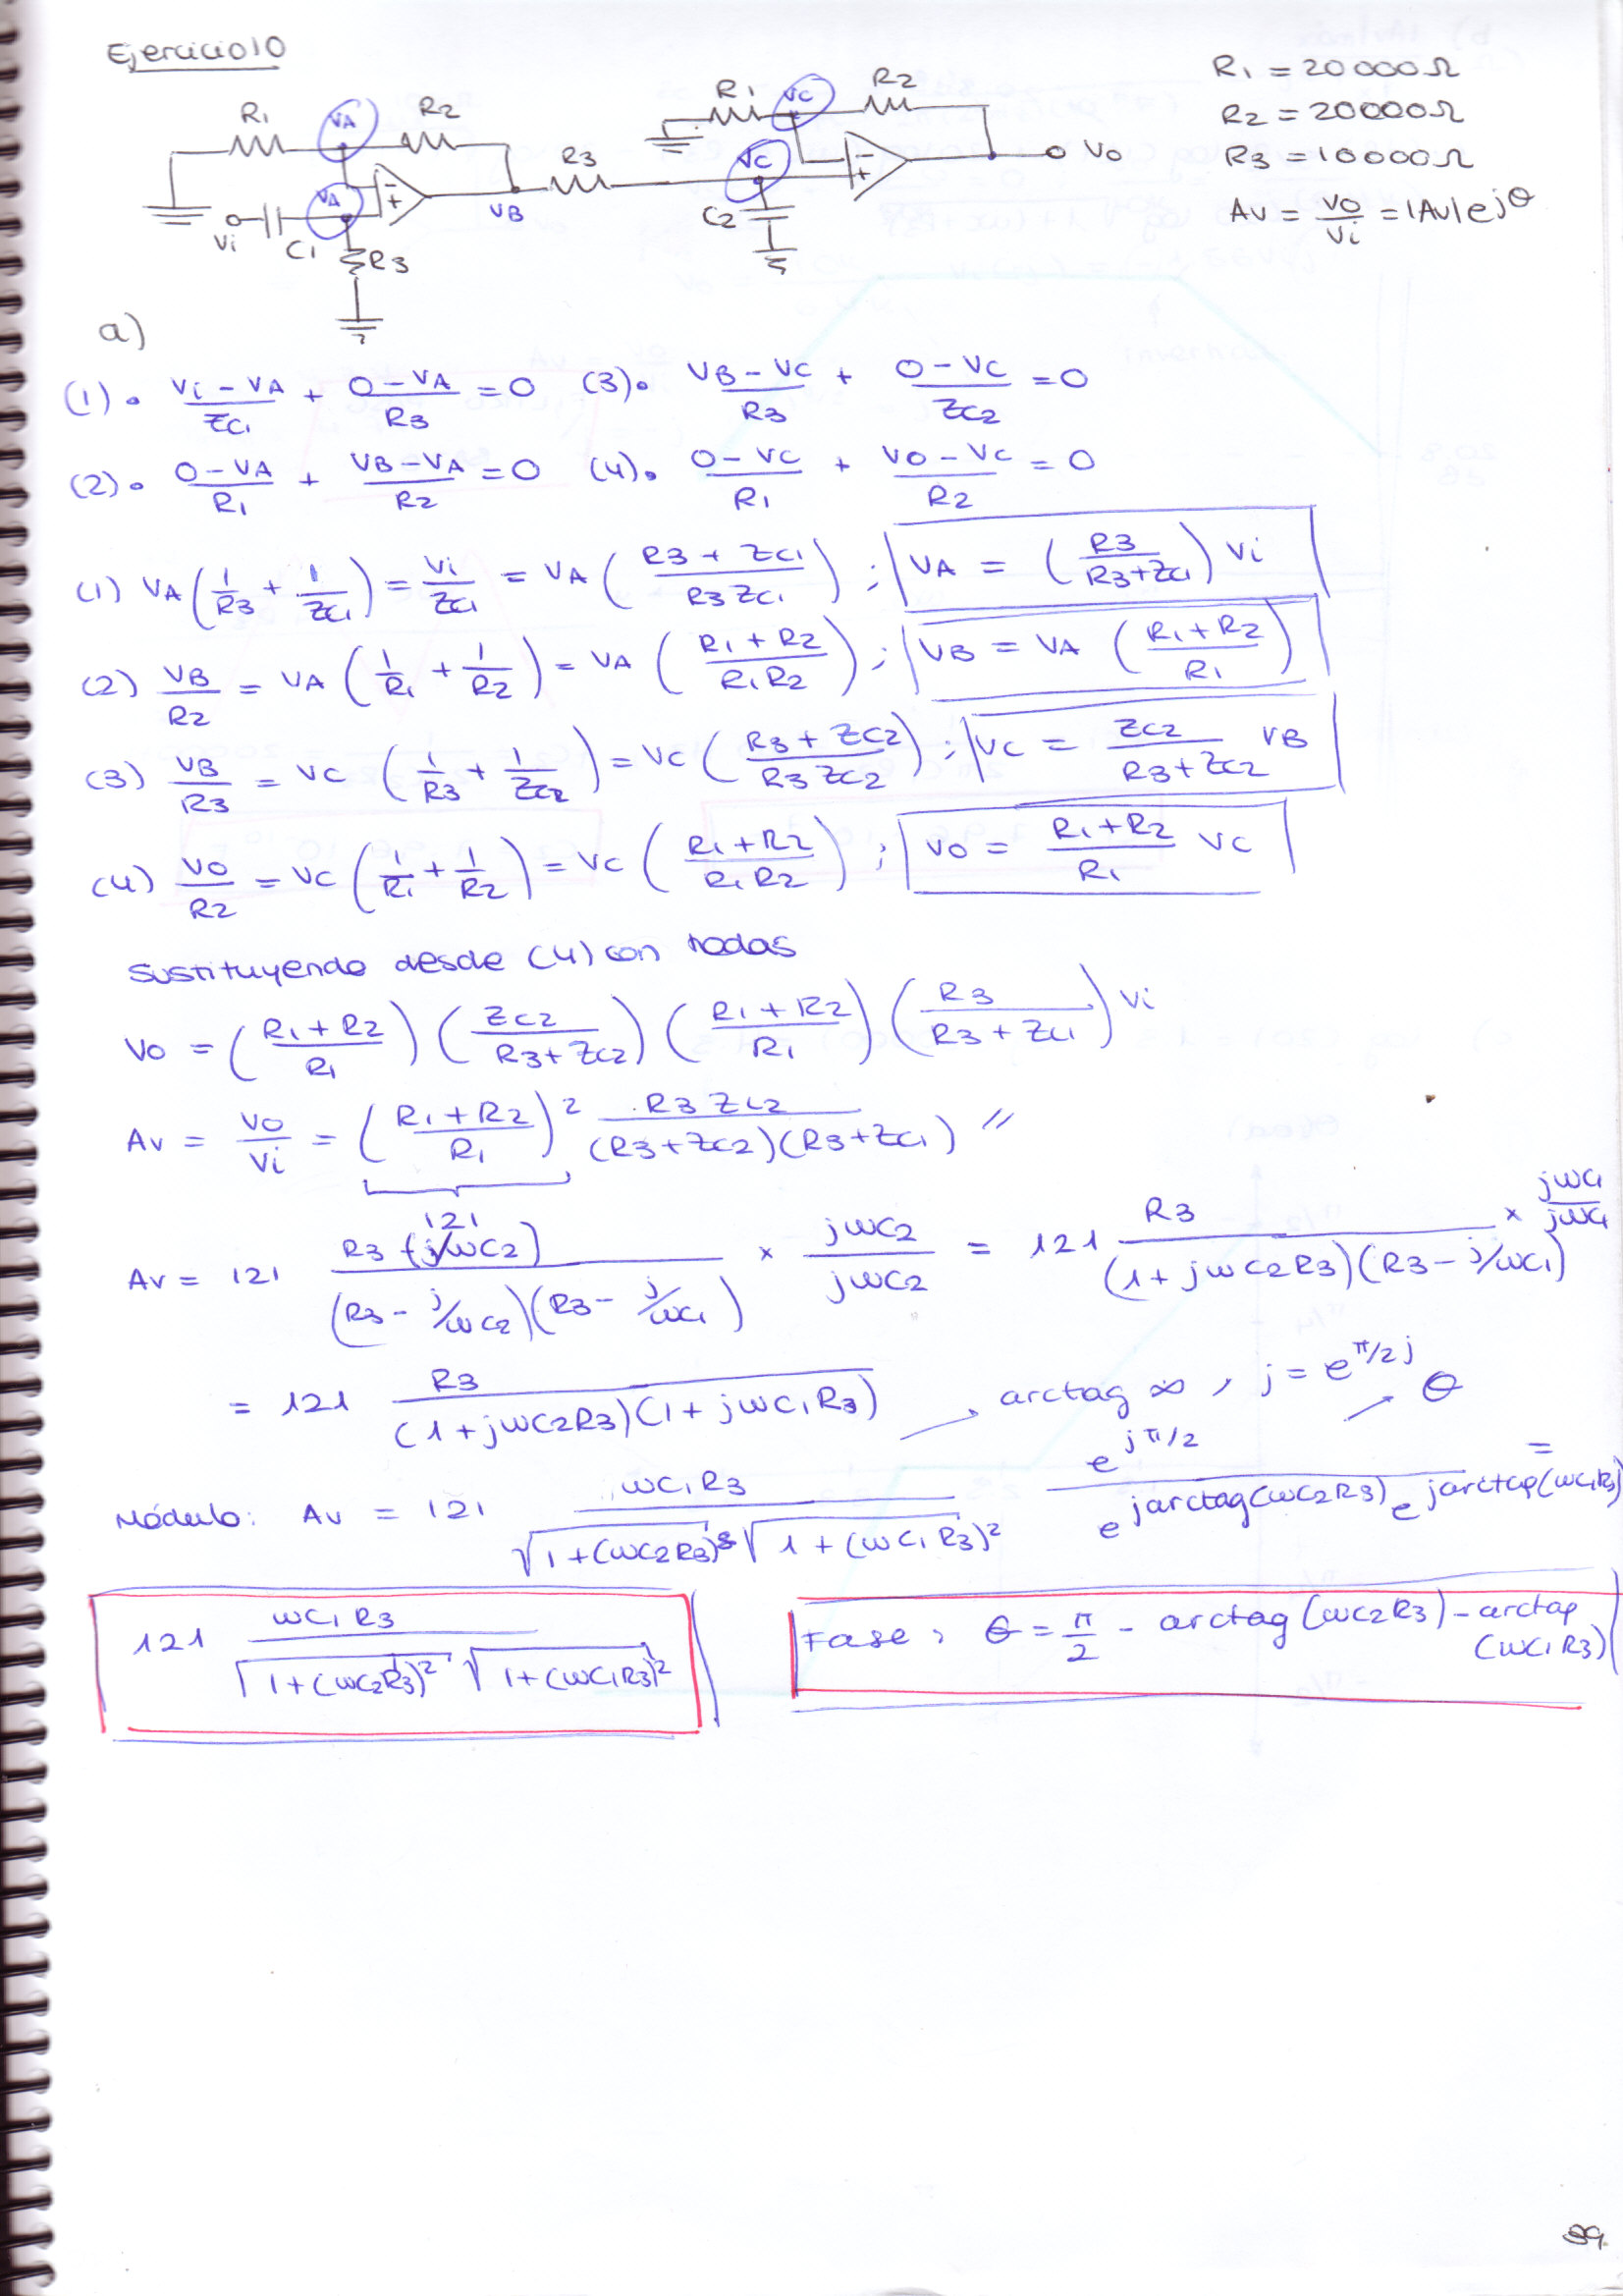 Ejercicio 10
R1 = 20000Ω
R2 = 20000Ω
R3 = 10000Ω
Av = Vo/Vi = |Av| e^jθ
R1 VA R2
VA
Vi C1 R3
VB R3
R1 VC R2
VC
C2
Vo
a)
(1)• (Vi - VA)/ZC1 + (0 - VA)/R3 = 0 (3)• (VB - VC)/R3 + (0 - VC)/ZC2 = 0
(2)• (0 - VA)/R1 + (VB - VA)/R2 = 0 (4)• (0 - VC)/R1 + (Vo - VC)/R2 = 0
(1) VA (1/R3 + 1/ZC1) = Vi/ZC1 = VA ((R3 + ZC1)/(R3 ZC1)) ; VA = (R3/(R3+ZC1)) Vi
(2) VB/R2 = VA (1/R1 + 1/R2) = VA ((R1 + R2)/(R1 R2)) ; VB = VA ((R1+R2)/R1)
(3) VB/R3 = VC (1/R3 + 1/ZC2) = VC ((R3 + ZC2)/(R3 ZC2)) ; VC = ZC2/(R3+ZC2) VB
(4) Vo/R2 = VC (1/R1 + 1/R2) = VC ((R1+R2)/(R1 R2)) ; Vo = (R1+R2)/R1 VC
Sustituyendo desde (4) con todas
Vo = ((R1+R2)/R1) (ZC2/(R3+ZC2)) ((R1+R2)/R1) (R3/(R3+ZC1)) Vi
Av = Vo/Vi = ((R1+R2)/R1)^2 (R3 ZC2)/((R3+ZC2)(R3+ZC1)) //
121
Av = 121 (R3 (-j/wC2))/((R3 - j/wC2)(R3 - j/wC1)) × jwC2/jwC2 = 121 R3/((1+jwC2R3)(R3 - j/wC1)) × jwC1/jwC1
= 121 R3/((1+jwC2R3)(1+jwC1R3)) arctag ∞ , j = e^π/2 j θ
Módulo: Av = 121 wC1R3/(√1+(wC2R3)^2 √1+(wC1R3)^2) e^jπ/2/(e^jarctag(wC2R3) e^jarctag(wC1R3)) =
121 wC1R3/(√1+(wC2R3)^2 √1+(wC1R3)^2)
Fase: θ = π/2 - arctag (wC2R3) - arctag (wC1R3)
39